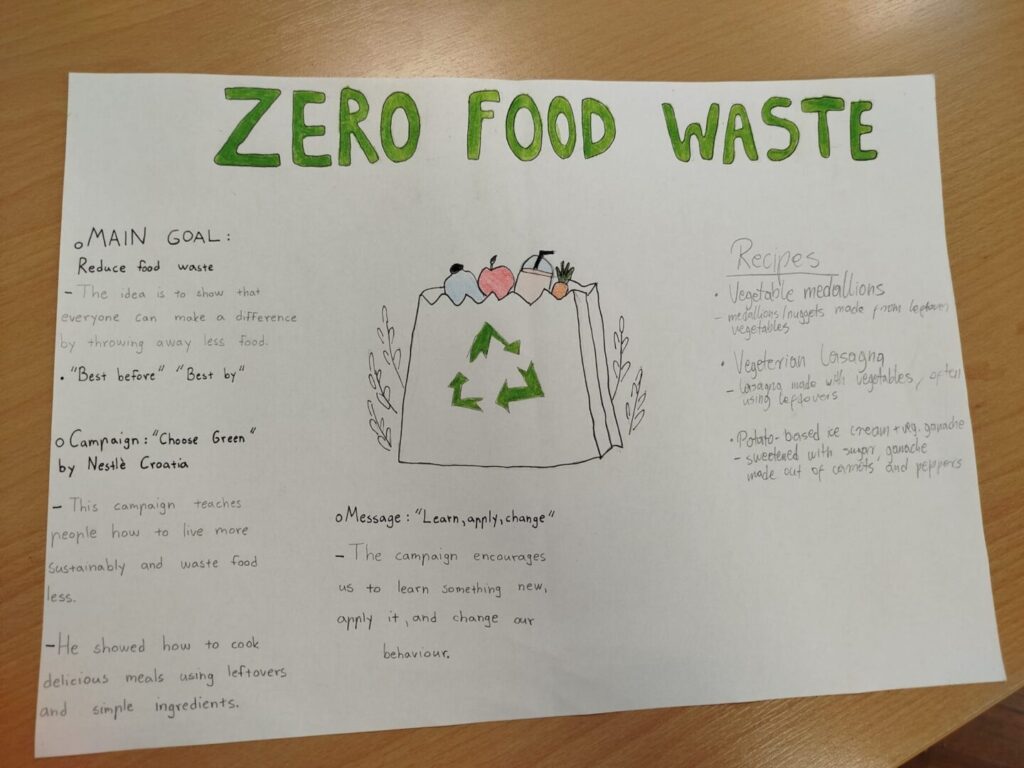 ZERO FOOD WASTE
o MAIN GOAL:
Reduce food waste
- The idea is to show that
everyone can make a difference
by throwing away less food.
• "Best before" "Best by"
o Campaign: "Choose Green"
by Nestlè Croatia
- This campaign teaches
people how to live more
sustainably and waste food
less.
- He showed how to cook
delicious meals using leftovers
and simple ingredients.
o Message: "Learn, apply, change"
- The campaign encourages
us to learn something new,
apply it, and change our
behaviour.
Recipes
• Vegetable medallions
- medallions/nuggets made from leftover
vegetables
• Vegeterian Lasagna
- lasagna made with vegetables, often
using leftovers
• Potato-based ice cream + veg. ganache
- sweetened with sugar, ganache
made out of carrots and peppers